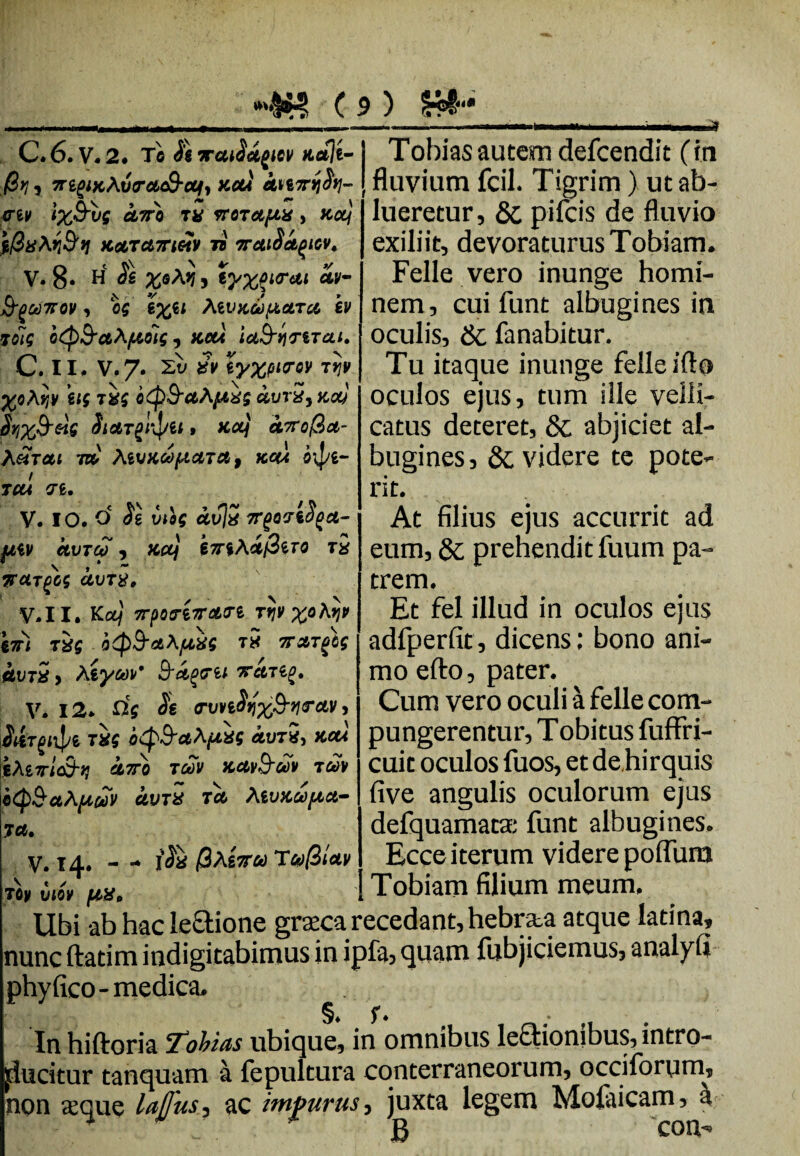 ( 9 )
C. 6. V. 2. Τὸ δὲ παιδάριον κατέ-
βη, περικλύσασθαι, καὶ ἀνεπήδη-
σεν ἰχθὺς ἀπὸ τȣ ποταμȣ, καὶ
ἐβȣλήθη καταπιεῖν τὸ παιδάριον.
V. 8. Ἡ δὲ χολὴ, ἐγχρίσαι ἄν-
θρωπον, ὃς ἔχει λευκώματα ἐν
τοῖς ὀφθαλμοῖς, καὶ ἰαθήσεται.
C. II. V. 7. Σὺ ȣν ἔγχρισον τὴν
χολὴν εἰς τȣς ὀφθαλμȣς ἀυτȣ, καὶ
δηχθεὶς διατρίψει, καὶ ἀποβα-
λεῖται τὰ λευκώματα, καὶ ὄψε-
ταί σε.
V. 10. Ὁ δὲ υἱὸς ἀυτȣ προσέδρα-
μεν ἀυτῷ, καὶ ἐπελάβετο τȣ
πατρὸς ἀυτȣ.
V. 11. Καὶ προσέπασε τὴν χολὴν
ἐπὶ τȣς ὀφθαλμȣς τȣ πατρὸς
ἀυτȣ, λέγων· θάρσει πάτερ.
V. 12. Ὡς δὲ συνεδήχθησαν,
διέτριψε τȣς ὀφθαλμȣς ἀυτȣ, καὶ
ἐλεπίσθη ἀπὸ τῶν κανθῶν τῶν
ὀφθαλμῶν ἀυτȣ τὰ λευκώμα-
τα.
V. 14. - - ἰδȣ βλέπω Τωβίαν
τὸν υἱόν μȣ.
Tobias autem defcendit (in
fluvium fcil. Tigrim) ut ab-
lueretur, & pifcis de fluvio
exiliit, devoraturus Tobiam.
Felle vero inunge homi-
nem, cui funt albugines in
oculis, & fanabitur.
Tu itaque inunge felle ifto
oculos ejus, tum ille velli-
catus deteret, & abjiciet al-
bugines, & videre te pote-
rit.
At filius ejus accurrit ad
eum, & prehendit fuum pa-
trem.
Et fel illud in oculos ejus
adfperfit, dicens: bono ani-
mo efto, pater.
Cum vero oculi à felle com-
pungerentur, Tobitus fuffri-
cuit oculos fuos, et de hirquis
five angulis oculorum ejus
defquamatæ funt albugines.
Ecce iterum videre poffum
Tobiam filium meum.
Ubi ab hac lectione græca recedant, hebræa atque latina,
nunc ftatim indigitabimus in ipfa, quam fubjiciemus, analyfi
phyfico-medica.
§. 5.
In hiftoria Tobias ubique, in omnibus lectionibus, intro-
ducitur tanquam à fepultura conterraneorum, occiforum,
non æque laffus, ac impurus, juxta legem Mofaicam, à
B con-